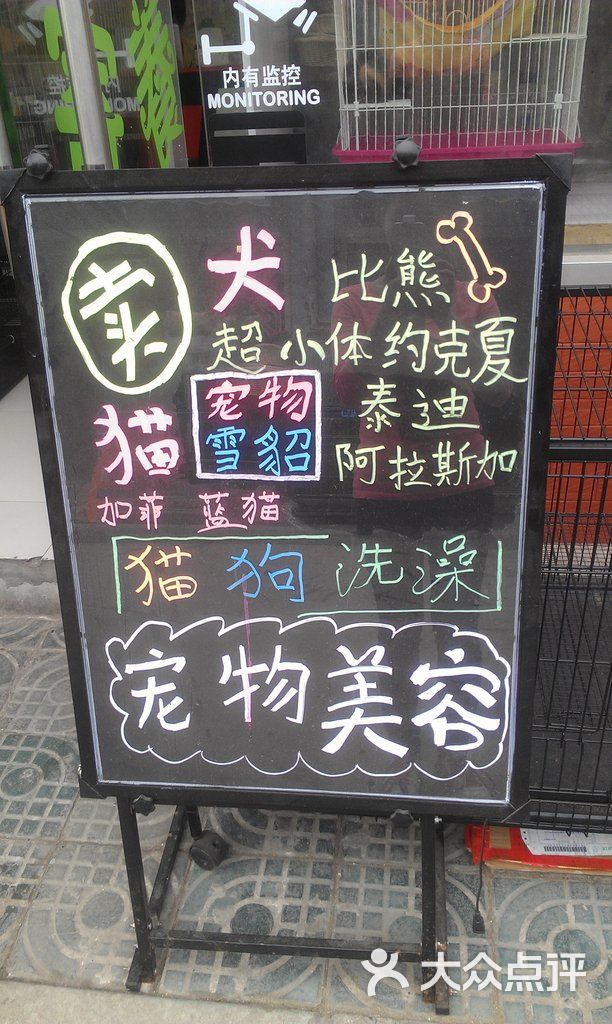 内有监控
MONITORING
卖 犬 比熊
超小体约克夏
猫 宠物 泰迪
雪貂 阿拉斯加
加菲 蓝猫
猫狗洗澡
宠物美容
大众点评